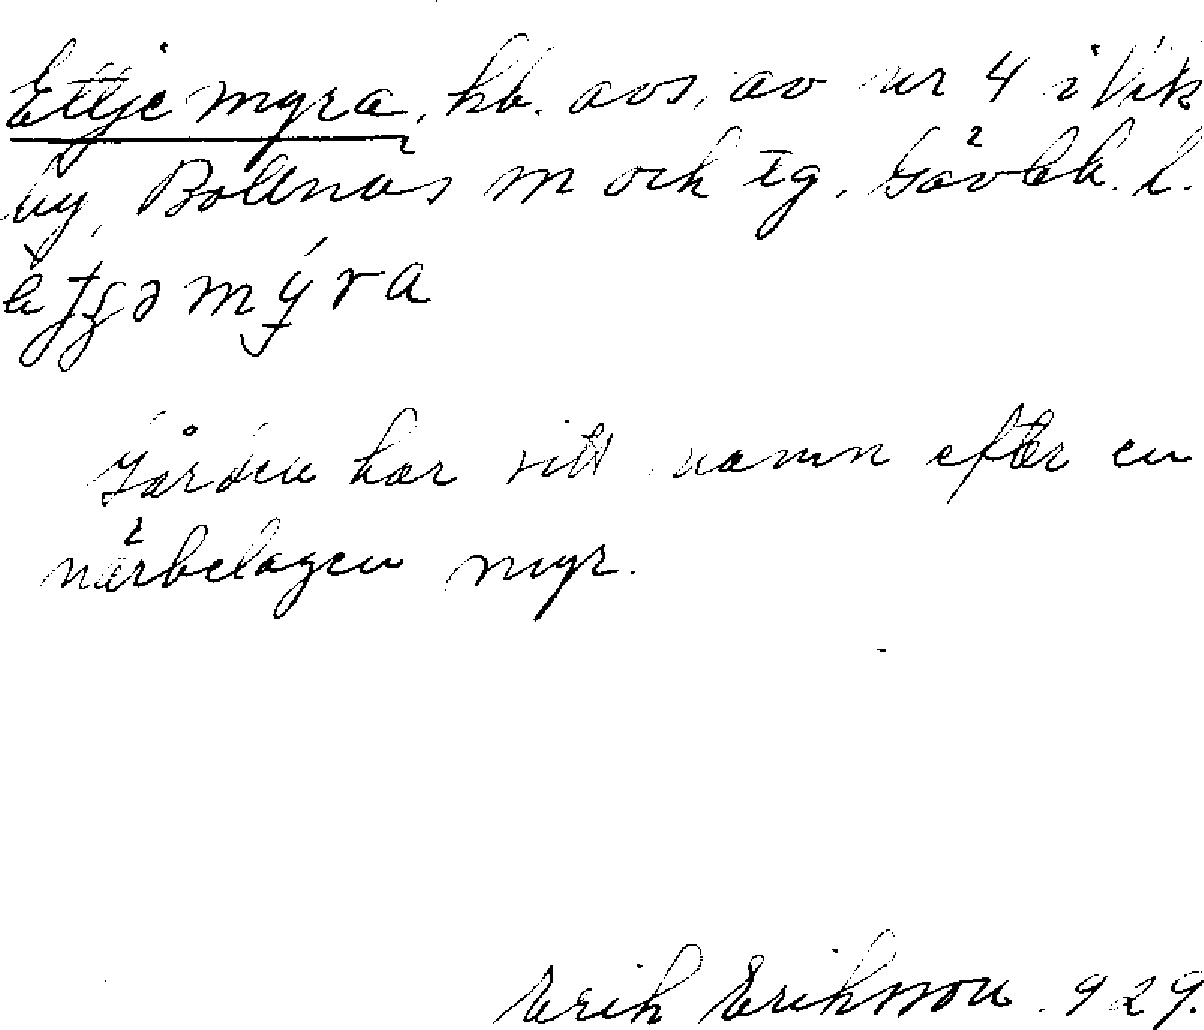 Ettjemyra, hb. avs. av nr 4 i Vik
by, Bollnäs sn och tg. Gävleb. l.
Gården har sitt namn efter en
närbelagen myr.
Erik Eriksson. 929.